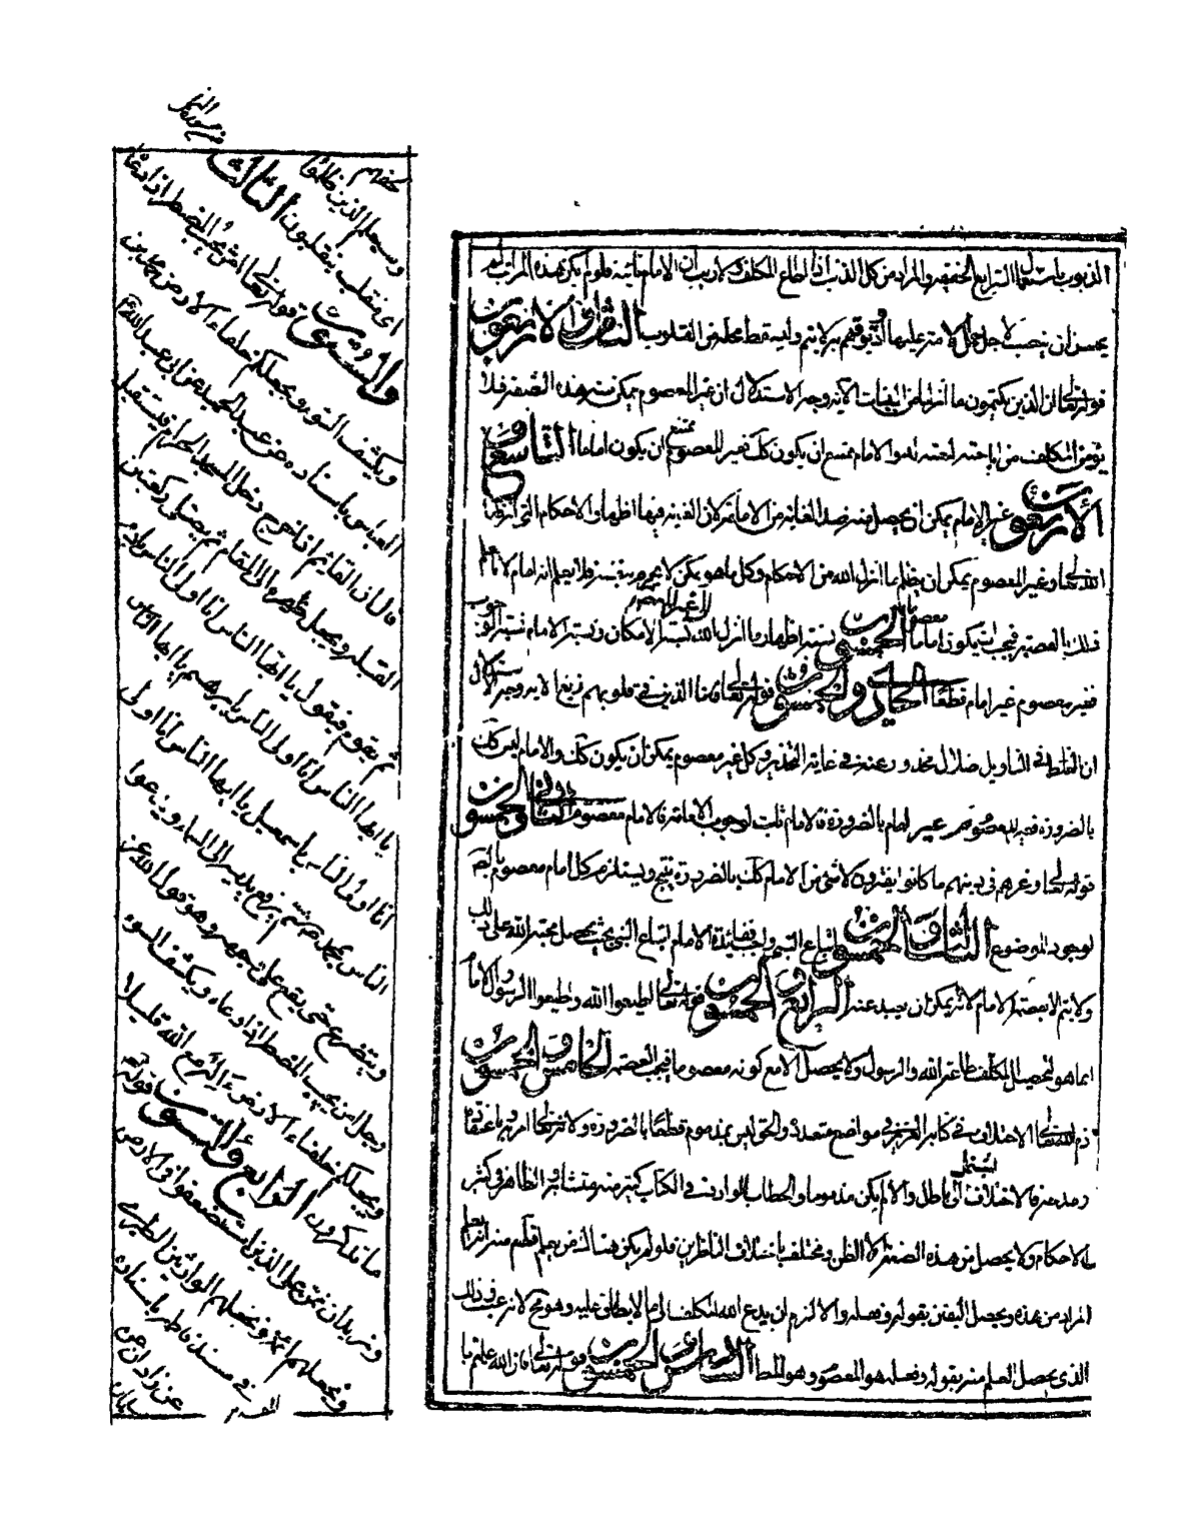 الذنوب باستعمال التراجع الحقيقية والمراد من كل الذنب اذا اطاع المكلف ولا ريب ان الامام نائبه فلو لم يكن بهذه المراتب لم
يحسن ان ينصب لاجل حمل الامة عليها وتوقيفهم ولا يتم وليه قط محله من القلوب الثامن والاربعون
قوله تعالى ان الذين يكتمون ما انزلنا من البينات الآية وجه الاستدلال ان غير المعصوم يمكن منه هذه الصفة فلا
يثق المكلف من اباحته لعنته والامام يمتنع ان يكون كك فغير المعصوم يمتنع ان يكون اماما التاسع و
الاربعون غير الامام يمكن ان يحصل منه ضد الغاية من الامامة لان الغاية فيها اظهار الاحكام التي انزلها
الله تعالى وغير المعصوم يمكن ان يظلم بما انزل الله من الاحكام وكل ما هو ممكن لا يجزم بنفيه ولا يعلم انه امام الا اذا علم
ذلك بالعصمة فيجب ان يكون اماما معصوما الخمسون نسبة اظهار ما انزل الله الى غير المعصوم نسبة الامكان ونسبة الامام نسبة الوجوب
فغير معصوم غير امام قطعا الحادي والخمسون قوله تعالى فاما الذين في قلوبهم زيغ الاية وجه الاستدلال
ان الغلط في التاويل ضلال محذور عنه في غاية التحذير وكل غير معصوم يمكن ان يكون كك والامام ليس كك
بالضرورة فغير المعصوم غير امام بالضرورة فالامام ثابت لوجوب الامامة فالامام معصوم الثاني والخمسون
قوله تعالى وغرهم في دينهم ما كانوا يفترون لا شئ من الامام كك بالضرورة ينتج ويستلزم كل امام معصوم بالضرورة
لوجود الموضوع الثالث والخمسون اتباع النبي واجب ففائدة الامام اتباع النبي بحيث يحصل محبة الله على ذلك
ولا يتم الا بعصمة الامام لانه يمكن ان يبعد عنه الرابع والخمسون قوله تعالى اطيعوا الله واطيعوا الرسول والامام
انما هو لتحصيل المكلف طاعة الله والرسول ولا يحصل الا مع كونه معصوما فيجب العصمة الخامس والخمسون
ذم الله تعالى الاختلاف في كتابه العزيز في مواضع متعددة والحق ليس بمذموم قطعا بالضرورة ولا نزلت امر به باعتقاده
ومدحه فالاختلاف يشتمل الى باطل والا لم يكن مذموما والخطاب الوارد في الكتاب كثير منه متشابه الظاهر في كثير
من الاحكام ولا يحصل من هذه الصفة الا الظن ومختلف باختلاف الناظرين فلو لم يكن هناك من يعلم قوله منه انه اعلم
المراد من هذه ويحصل اليقين بقوله وفعله والا لزم ان يدع الله المكلف الى ما لا يطلق عليه وهو محال لانه عبث في ذلك
الذي يحصل العلم منه بقوله وفعله هو المعصوم وهو المطلوب السادس والخمسون قوله تعالى فان الله عليم با
حقهم
وسيعلم الذين ظلموا
اي منقلب ينقلبون الثالث
والستون قوله تعالى امن يجيب المضطر اذا دعاه
ويكشف السوء ويجعلكم خلفاء الارض محمد بن
العباس باسناده عن عبد الحميد عن ابي عبد الله ع
قال ان القايم اذا خرج دخل المسجد الحرام فيستقبل
القبلة ويجعل ظهره الى المقام ثم يصلي ركعتين
ثم يقوم فيقول يا ايها الناس انا اولى الناس بادم
يا ايها الناس انا اولى الناس بابرهيم يا ايها الناس
انا اولى الناس باسمعيل يا ايها الناس انا اولى
الناس بمحمد ص ثم يرفع يديه الى السماء ويدعوا
ويتضرع حتى يقع على وجهه وهو قول الله عز
وجل امن يجيب المضطر اذا دعاه ويكشف السوء
ويجعلكم خلفاء الارض ءاله مع الله قليلا
ما تذكرون الرابع والستون قوله تع
ونريد ان نمن على الذين استضعفوا في الارض
ونجعلهم ائمة ونجعلهم الوارثين الطبري
في مسند فاطمة باسناده
عن زادان عن